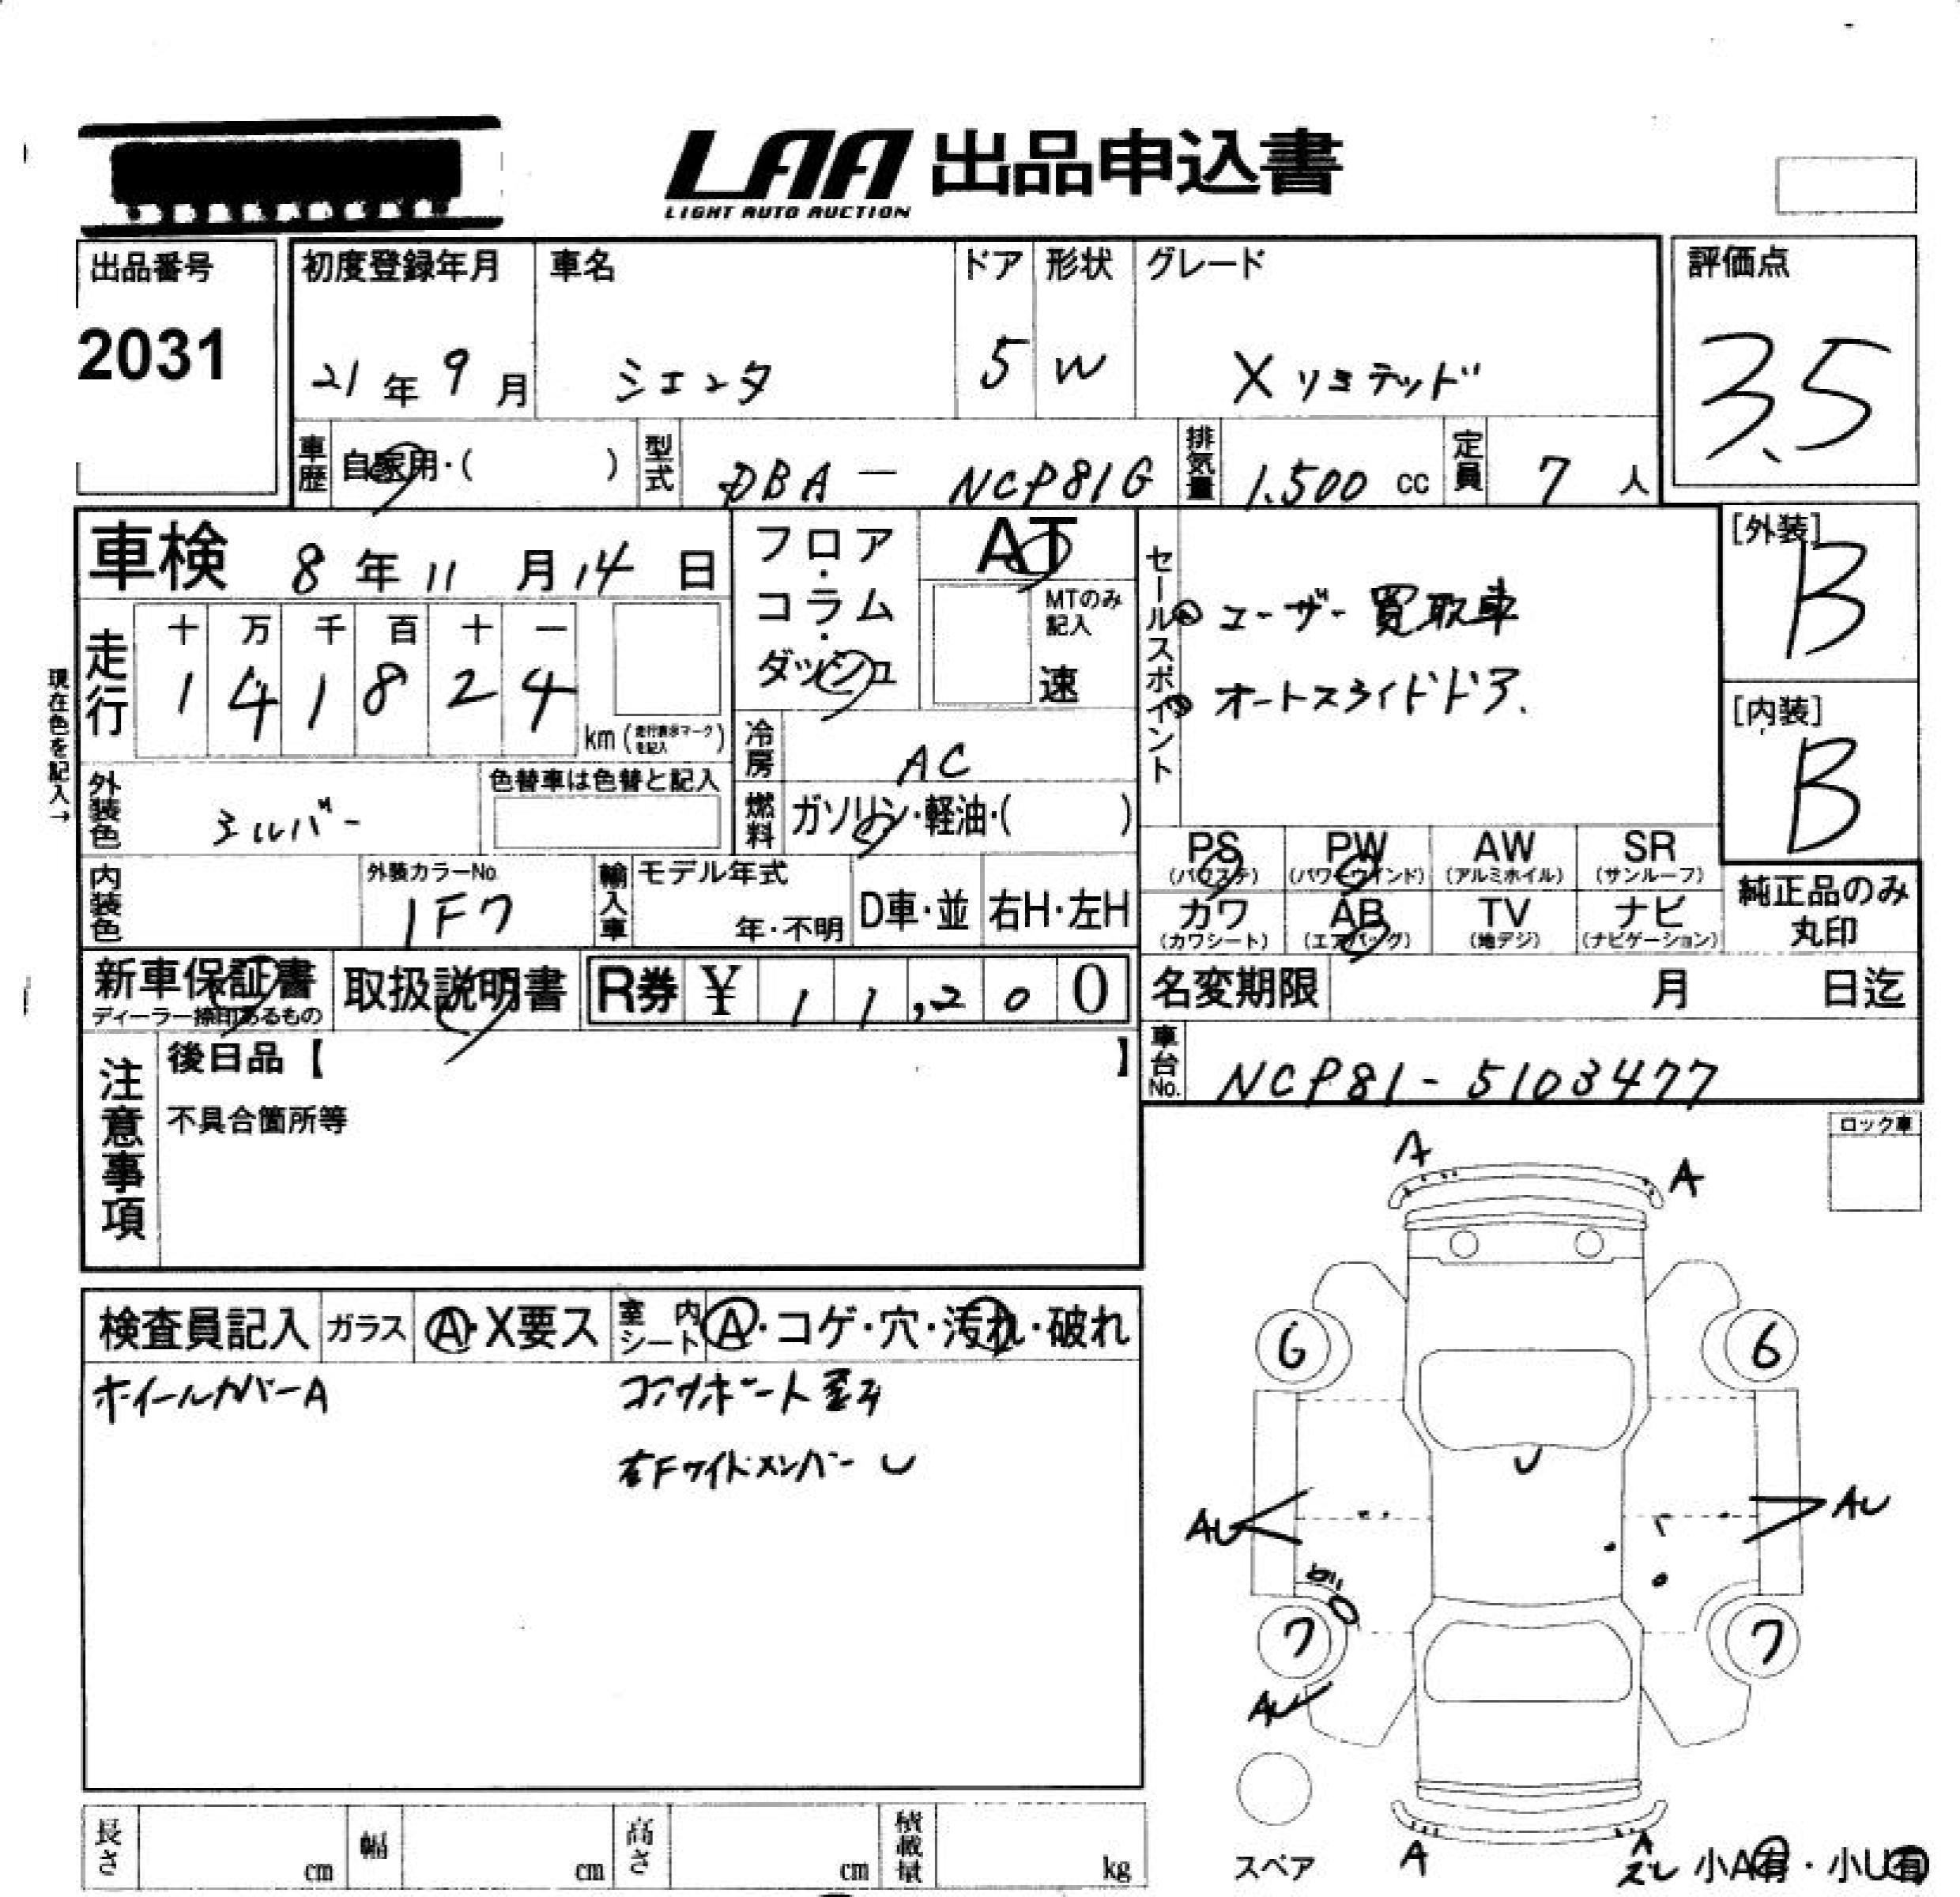 LAA 出品申込書
LIGHT AUTO AUCTION
出品番号
2031
初度登録年月
21年9月
車名
シエンタ
ドア
5
形状
W
グレード
Xリミテッド
評価点
3.5
車歴 自家用・( )
型式 DBA-NCP81G
排気量 1.500 cc
定員 7 人
車検 8年11月14日
フロア・コラム・ダッシュ
AT
MTのみ記入
速
セールスポイント
① ユーザー買取車
② オートスライドドア.
[外装]
B
[内装]
B
現在色を記入→
走行
十 万 千 百 十 一
1 4 1 8 2 4
km (走行表示マークを記入)
冷房 AC
外装色 シルバー
色替車は色替と記入
燃料 ガソリン・軽油・( )
内装色
外装カラーNo.
1F7
輸入車 モデル年式
年・不明
D車・並
右H・左H
PS (パワステ)
PW (パワーウインド)
AW (アルミホイル)
SR (サンルーフ)
カワ (カワシート)
AB (エアバッグ)
TV (地デジ)
ナビ (ナビゲーション)
純正品のみ丸印
新車保証書
ディーラー捺印あるもの
取扱説明書
R券 ¥ 11,200
名変期限 月 日迄
車台No. NCP81-5103477
注意事項
後日品【 】
不具合箇所等
ロック車
検査員記入
ガラス Ⓐ・X要ス
室内シート Ⓐ・コゲ・穴・汚れ・破れ
ホイールカバーA
右Fサイドメンバー U
A
A
6
6
U
AU
AU
7
7
AU
スペア
A
A
スレ
小A有・小U有
長さ cm
幅 cm
高さ cm
積載量 kg